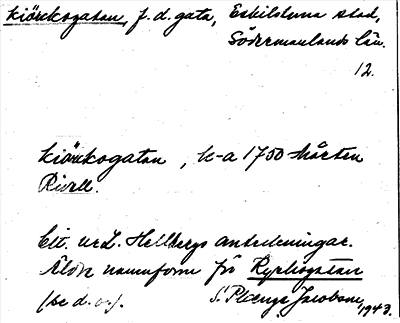 Kiörckogatan, f. d. gata, Eskilstuna stad,
Södermanlands län.
12.
Kiörkogatan, k-a 1750 Mårten
Rivell.
Cit. ur L. Hellbergs anteckningar.
Äldre namnform för Kyrkogatan
(se d. o.). S. Jacobson, 1943.